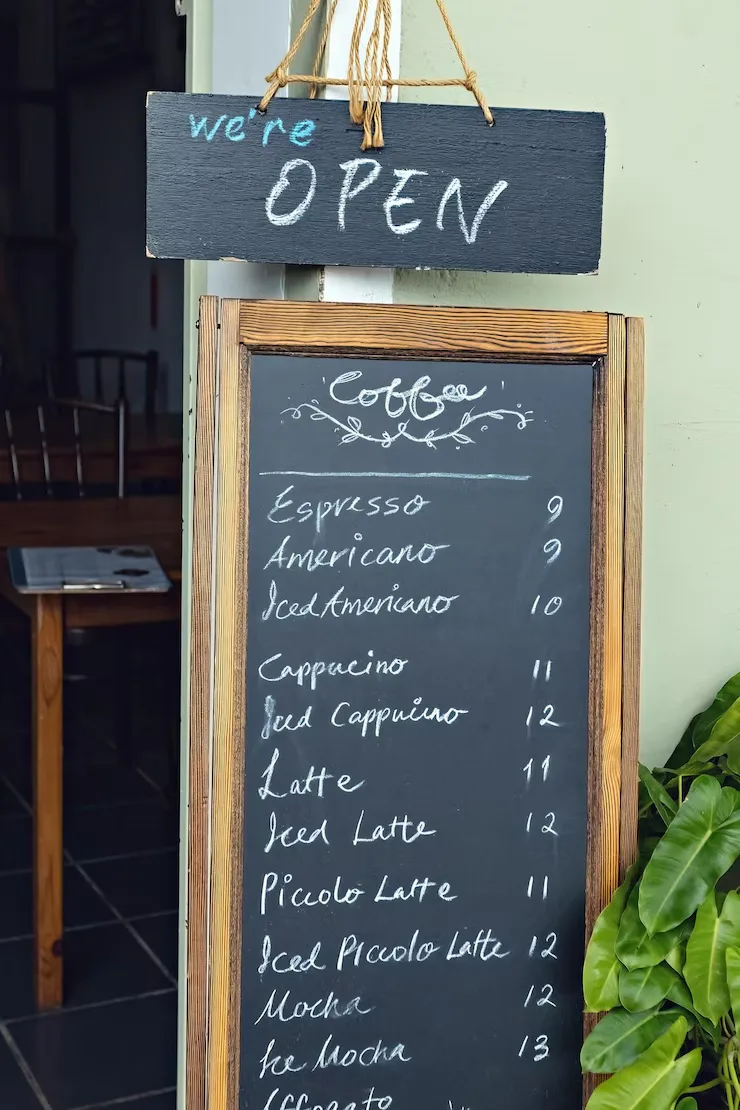 we're
OPEN
Coffee
Espresso 9
Americano 9
Iced Americano 10
Cappucino 11
Iced Cappucino 12
Latte 11
Iced Latte 12
Piccolo Latte 11
Iced Piccolo Latte 12
Mocha 12
Ice Mocha 13
Affogato